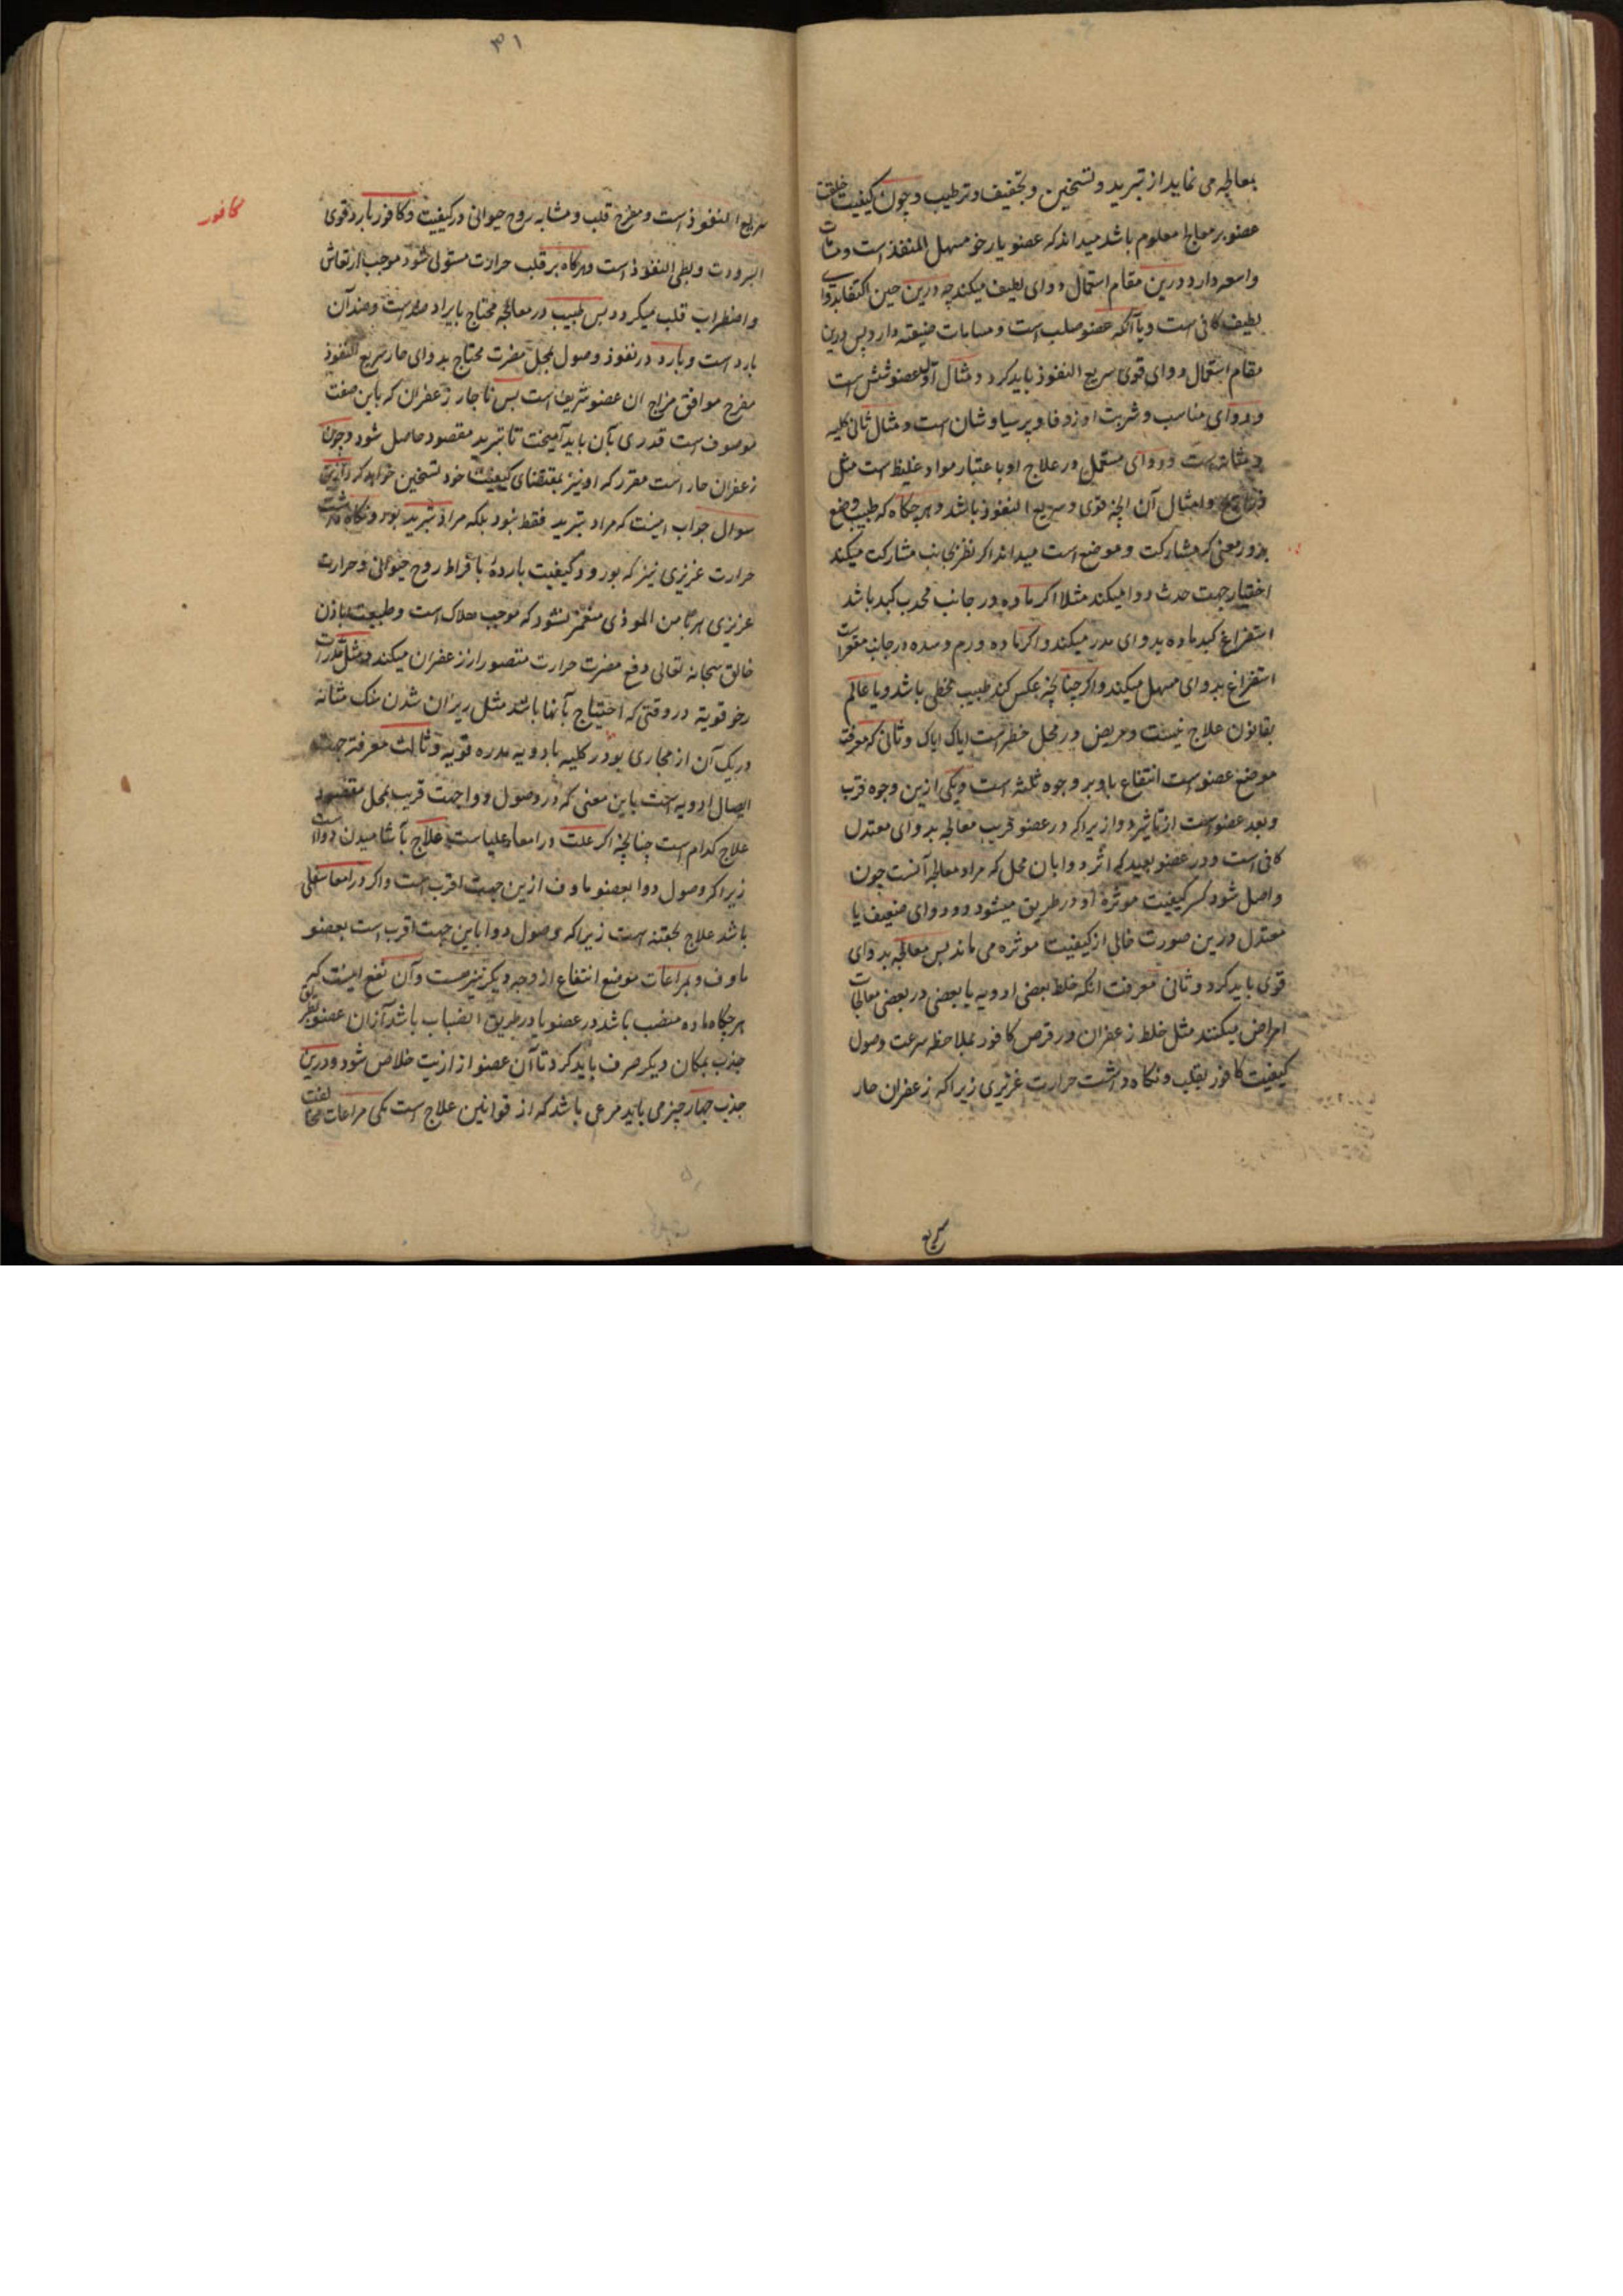 معالجه می نماید از تبرید و تسخین و تجفیف و ترطیب و چون کیفیت خلقت
عضو بر معالج معلوم باشد میداند که عضو یا رخو سهل المنفذ است و مسامات
واسعه دارد درین مقام استعمال دوای لطیف میکند چه درین حین اکتفا بدوای
لطیف کافی است و یا آنکه عضو صلب است و مسامات ضیقه دارد پس درین
مقام استعمال دوای قوی سریع النفوذ باید کرد و مثال اول عضو شش است
و دوای مناسب و شربت او زوفا و پرسیاوشان است و مثال ثانی کلیه
و مثانه است و دوای مستعمل در علاج او باعتبار مواد غلیظ است مثل
و امثال آن انچه قوی و سریع النفوذ باشد و هرچکاه که طبیب وضع
بدو معنی که مشارکت و موضع است میداند اکر نظر بجانب مشارکت میکند
اختیار جهت حدث دوا میکند مثلا اکر ماده در جانب محدب کبد باشد
استفراغ کبد ماده بدوای مدر میکند و اکر ماده ورم و سده در جانب مقعر است
استفراغ بدوای مسهل میکند و اکر چنانچه عکس کند طبیب مخطی باشد و یا عالم
بقانون علاج نیست و مریض در محل خطر است ایاک ایاک و ثانی که معرفت
موضع عضو است انتفاع باو بر وجوه ثلثه است و یکی ازین وجوه قرب
و بعد عضو است از تاثیر دوا زیرا که در عضو قریب معالجه بدوای معتدل
کافی است و در عضو بعید که اثر دوا بان محل که مراد معالجه آنست چون
واصل شود کسر کیفیت موثره او در طریق میشود و دوای ضعیف یا
معتدل درین صورت خالی از کیفیت موثره می ماند پس معالجه بدوای
قوی باید کرد و ثانی معرفت انکه خلط بعضی ادویه با بعضی در بعضی معالجات
امراض میکنند مثل خلط زعفران در قرص کافور بملاحظه سرعت وصول
کیفیت کافور بقلب و نکاه داشت حرارت غریزی زیرا که زعفران حار
سریع
۳۱
کافور
سریع النفوذ است و مفرح قلب و مشابه روح حیوانی در کیفیت و کافور بارد قوی
البرودت و بطی النفوذ است و هرکاه بر قلب حرارت مستولی شود موجب ارتعاش
و اضطراب قلب میکردد پس طبیب در معالجه محتاج بایراد ضد است و ضد آن
بارد است و بارد در نفوذ و وصول بمحل مضرت محتاج بدوای حار سریع النفوذ
مفرح موافق مزاج ان عضو شریف است پس ناچار زعفران که باین صفت
موصوف است قدری بآن باید آمیخت تا تبرید مقصود حاصل شود و چون
زعفران حار است مقرر که او نیز بمقتضای کیفیت خود تسخین خواهد کرد ازین
سوال جواب اینست که مراد تبرید فقط نبود بلکه مراد تبرید بود و نکاه داشت
حرارت غریزی نیز که بورود کیفیت بارده بافراط روح حیوانی و حرارت
غریزی هربا من الموذی منغمر نشود که موجب هلاک است و طبیعت باذن
خالق سبحانه تعالی دفع مضرت حرارت متصور از زعفران میکند و مثل مدرات
رخو قویه در وقتی که احتیاج بآنها باشد مثل ریزان شدن سنک مثانه
و ریک آن از مجاری بود در کلیه بادویه مدره قویه و ثالث معرفة جهت
ایصال ادویه است باین معنی که در وصول دوا جهت قریب بمحل مقصود
علاج کدام است چنانچه اکر علت در امعاء علیاست علاج بآشامیدن دوا است
زیرا که وصول دوا بعضو ماوف ازین جهت اقرب است و اکر در امعاء سفلی
باشد علاج بحقنه است زیرا که وصول دوا باین جهت اقرب است بعضو
ماوف و بمراعات موضع انتفاع از وجه دیکر نیز هست و آن نفع اینست که
هرچکاه ماده منصب باشد در عضو یا در طریق انصباب باشد از ان عضو بطریق
جذب بمکان دیکر صرف باید کرد تا آن عضو از اذیت خلاص شود و درین
جذب چهار چیز می باید مرعی باشد که از قوانین علاج است یکی مراعات مخالفت